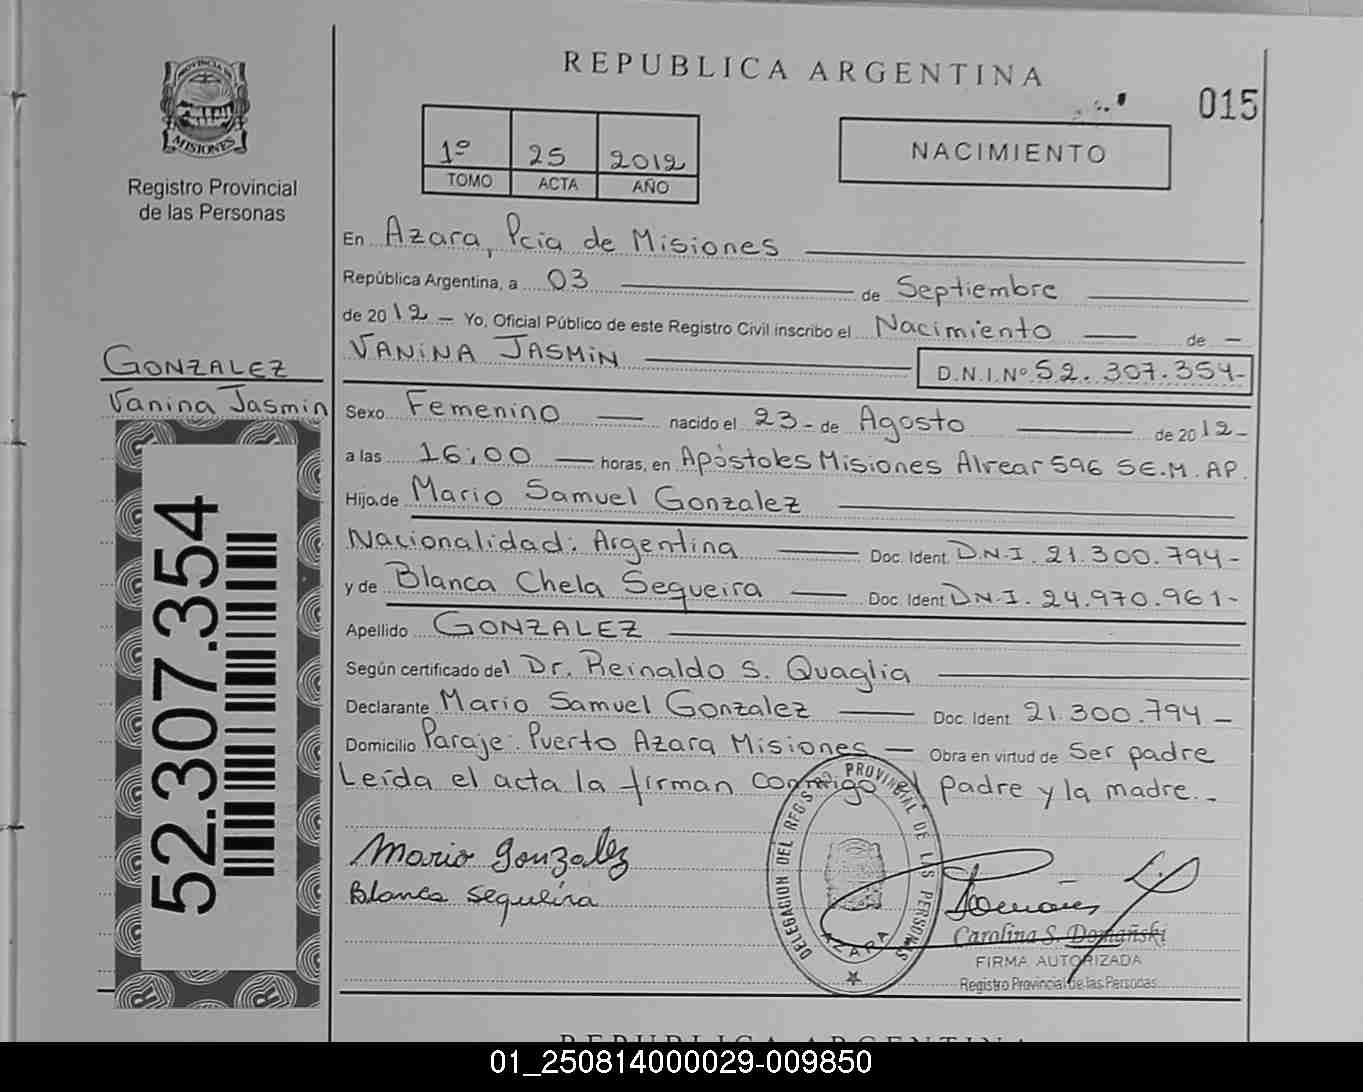 REPUBLICA ARGENTINA
015
PROVINCIA DE
MISIONES
Registro Provincial
de las Personas
1º 25 2012
TOMO ACTA AÑO
NACIMIENTO
En Azara, Pcia de Misiones
República Argentina, a 03 de Septiembre
de 2012 - Yo, Oficial Público de este Registro Civil inscribo el Nacimiento de -
VANINA JASMIN D.N.I.Nº 52.307.354-
GONZALEZ
Vanina Jasmin
Sexo Femenino nacido el 23 - de Agosto de 2012-
a las 16,00 horas, en Apóstoles Misiones Alvear 596 SE.M.AP.
Hija de Mario Samuel Gonzalez
Nacionalidad: Argentina Doc. Ident. D.N.I. 21.300.794-
y de Blanca Chela Sequeira Doc. Ident D.N.I. 24.970.961-
Apellido GONZALEZ
Según certificado del Dr. Reinaldo S. Quaglia
Declarante Mario Samuel Gonzalez Doc. Ident. 21.300.794 -
Domicilio Paraje: Puerto Azara Misiones - Obra en virtud de Ser padre
Leída el acta la firman conmigo el padre y la madre.-
52.307.354
Mario Gonzalez
Blanca Sequeira
DELEGACION DEL REG. PROVINCIAL DE LAS PERSONAS
AZARA
Carolina S. Domañski
FIRMA AUTORIZADA
Registro Provincial de las Personas
REPUBLICA ARGENTINA
01_250814000029-009850